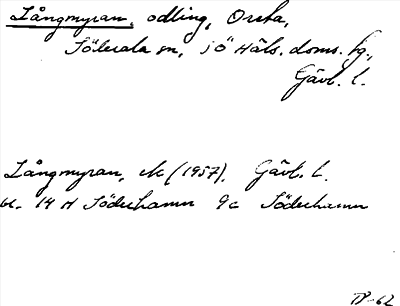 Långmyran, odling, Orsta,
Söderala sn, SÖ Häls. doms. fg.,
Gävl. l.
Långmyran, ek (1957). Gävl. L.
bl. 14 H Söderhamn 9c Söderhamn
TP-62